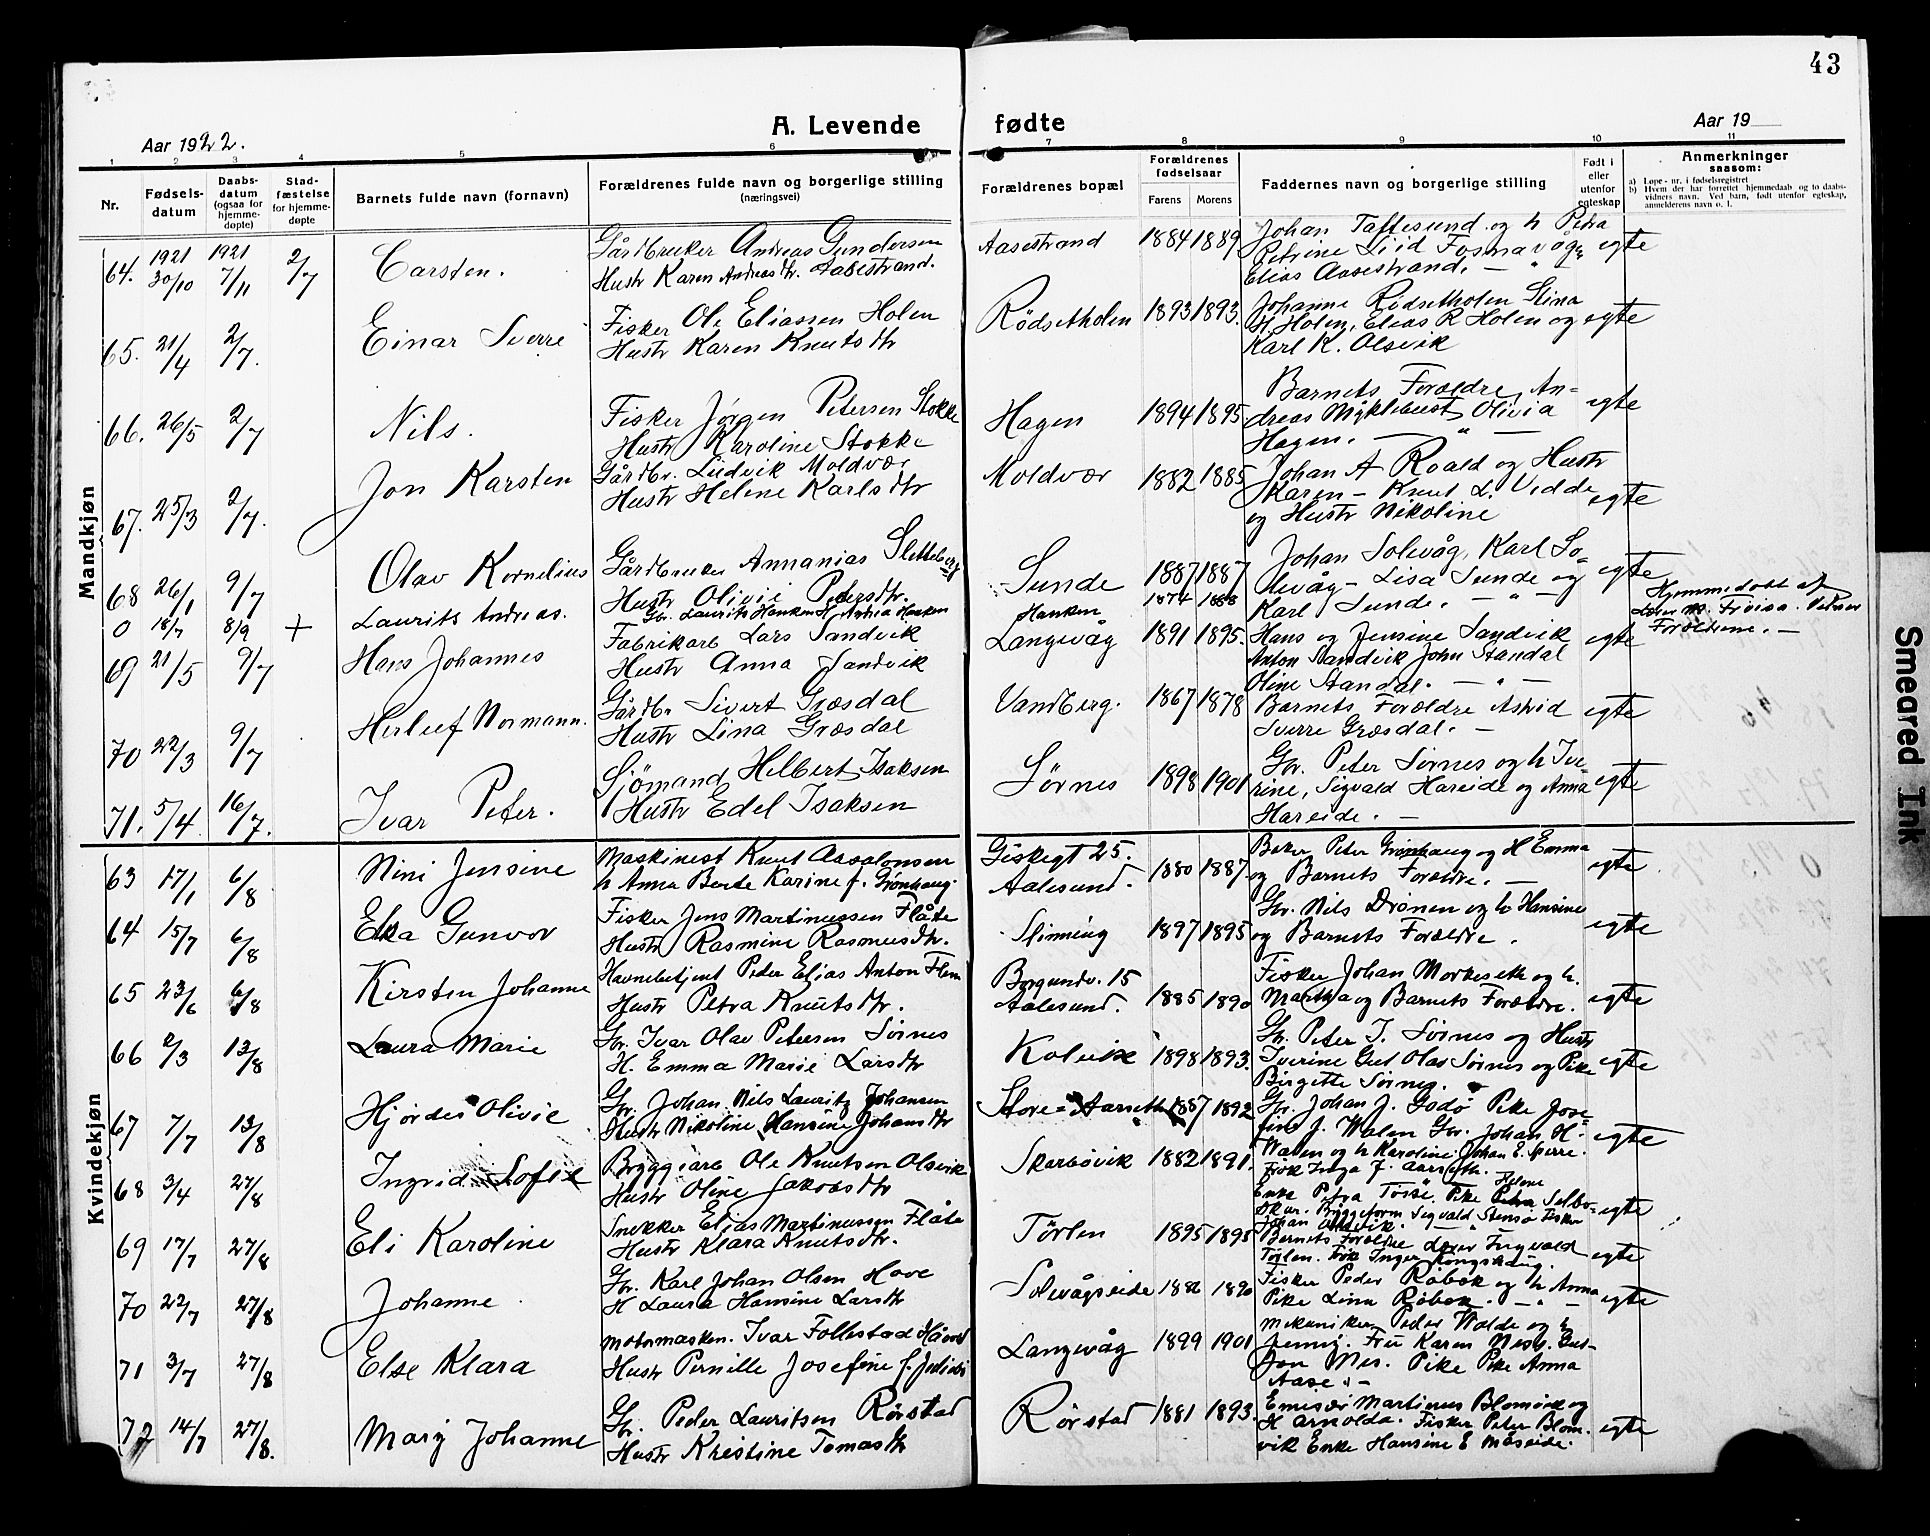 43
Aar 1922.
A. Levende fødte
Aar 19
1 2 3 4 5 6 7 8 9 10 11
Nr.
Fødsels-
datum
Daabs-
datum
(ogsaa for
hjemme-
døpte)
Stad-
fæstelse
for hjemme-
døpte
Barnets fulde navn (fornavn)
Forældrenes fulde navn og borgerlige stilling
(næringsvei)
Forældrenes bopæl
Forældrenes
fødselsaar
Farens Morens
Faddernes navn og borgerlige stilling
Født i
eller
utenfor
egteskap
Anmerkninger
saasom:
a) Løpe-nr. i fødselsregistret
b) Hvem der har forrettet hjemmedaab og to daabs-
vidners navn. Ved barn, født utenfor egteskap,
anmelderens navn o. l.
Mandkjøn
64. 1921 30/10 1921 7/11 2/7 Carsten.
Gårdbruker Andreas Gundersen
Hustr Karen Andreasdtr. Aasestrand.
Aasestrand 1884 1889
Johan Taftesund og h Petra
Petrine Liid Fosnavåg
Elias Aasestrand. — " —
egte
65. 21/4 2/7. Einar Sverre
Fisker Ole Eliassen Holen
Hustr Karen Knutsdtr
Rödsetholen 1893 1893.
Johanne Rödsetholen Stina
H. Holen, Elias R Holen og
Karl K. Olsvik
egte
66. 26/5 2/7 Nils.
Fisker Jørgen Petersen Stokke
Hustr Karoline Stokke
Hagen 1894 1895.
Barnets Forældre, An-
dreas Myklebust Olivia
Hagen. — " —
egte
67. 25/3 2/7. Jon Karsten
Gårdbr. Ludvik Moldvær
Hustr Helene Karlsdtr
Moldvær 1882 1885
Johan A Roald og Hustr
Karen — Knut L. Vedde
og Hustr Nikoline
egte
68 26/1 9/7 Olav Kornelius
Gårdbruker Annanias Slettebøg
Hustr Olivie Petersdtr.
Sunde 1887 1887
Johan Solevåg, Karl So-
levåg — Lisa Sunde og
Karl Sunde. — " —
egte
0 18/7 8/9 + Laurits Andreas.
Gbr. Laurits Hanken H. Anna Hanken
Hanken 1874 1888
Hjemmedøbt af
Forældrene. —
69 21/5 9/7 Hans Johannes
Fabrikarb Lars Sandvik
Hustr Anna Sandvik
Langevåg 1891 1895.
Hans og Jensine Sandvik
Anton Sandvik John Standal
Oline Standal. — " —
egte
70 22/3 9/7 Herleif Normann.
Gårdbr Sivert Græsdal
Hustr Lina Græsdal
Vandberg. 1867 1878
Barnets Forældre Astrid
Sverre Græsdal. —
egte
71. 5/4 16/7. Ivar Peter.
Sjömand Helbert Isaksen
Hustr Edel Isaksen
Sörnes 1898 1901
Gbr. Peter Sörnes og h Ive-
rine, Sigvald Hareide og Anna
Hareide. —
egte
Kvindekjøn
63 17/1 6/8 Nini Jensine
Maskinest Knut Assalonsen
h Anna Berte Karine f. Grønhaug.
Giskegt 25.
Aalesund. 1880 1887.
Baker Peter Grønhaug og H Emma
og Barnets Forældre. —
egte
64 15/7 6/8 Elsa Gunvor
Fisker Jens Martinussen Flåte
Hustr Rasmine Rasmusdtr.
Slinning 1897 1895
Gbr. Nils Drönen og h Hansine
og Barnets Forældre.
egte
65 23/6 6/8 Kirsten Johanne
Havnebetjent Peder Elias Anton Flem
Hustr Petra Knutsdtr.
Borgundv. 15
Aalesund. 1885 1890
Fisker Johan Morkeseth og h.
Martha og Barnets Forældre.
egte
66 2/3 13/8 Laura Marie
Gbr. Ivar Olav Petersen Sørnes
H. Emma Marie Larsdtr
Kolvik 1898 1893.
Gbr. Peter I. Sörnes og Hustr
Iverine Gut Olas Sørnes og Pike
Birgitte Sørnes.
egte
67 7/7 13/8 Hjördis Olivie
Gbr. Johan Nils Lauritz Johansen
Hustr Nikoline Hansine Johansdtr
Store-Aarseth 1887 1892
Gbr. Johan J. Godø Pike Jose-
fine J. Walen Gbr. Johan H.
Walen og h Karoline. Johan E. Sperre.
Frøk Inga J. Aarseth.
egte
68 3/4 27/8 Ingrid Sofie
Bryggearb Ole Knutsen Olsvik
Hustr Oline Jakobsdtr
Skarbövik 1882 1891.
Enke Petra Tösse, Pike Helene Selbo-
skar. Bryggeform Sigvald Stensø Fisker
Johan Olsvik. — " —
egte
69 17/7 27/8 Eli Karoline
Snekker Elias Martinussen Flåte
Hustr Klara Knutsdtr.
Törlen 1895 1895
Barnets Forældre Ingvald
Törlen. Frøk Inger Kongshaug.
egte
70 22/7 27/8 Johanne
Gbr. Karl Johan Olsen Hove
H Laura Hansine Larsdtr
Solevågseide 1886 1890
Fisker Peder Röbek og h Anna
Pike Lina Röbek. — " —
egte
71 3/7 27/8 Else Klara
Motormasken. Ivar Follestad Håvold
Hustr Pernille Josefine f.
Langevåg 1899 1901
Mekaniker Peder Walde og h
Jenny. Fru Karen Nesb. Gut-
Jon Nes. Pike Pike Anna
Aase. —
72 14/7 27/8. Mary Johanne
Gbr. Peder Lauritsen Rörstad
Hustr Kristine Tomasdtr
Rörstad 1881 1893.
Emisær Martinus Blomvik og
H Arnolda. Fisker Peter Blom-
vik Enke Hansine E Måseide.
egte
Smeared Ink